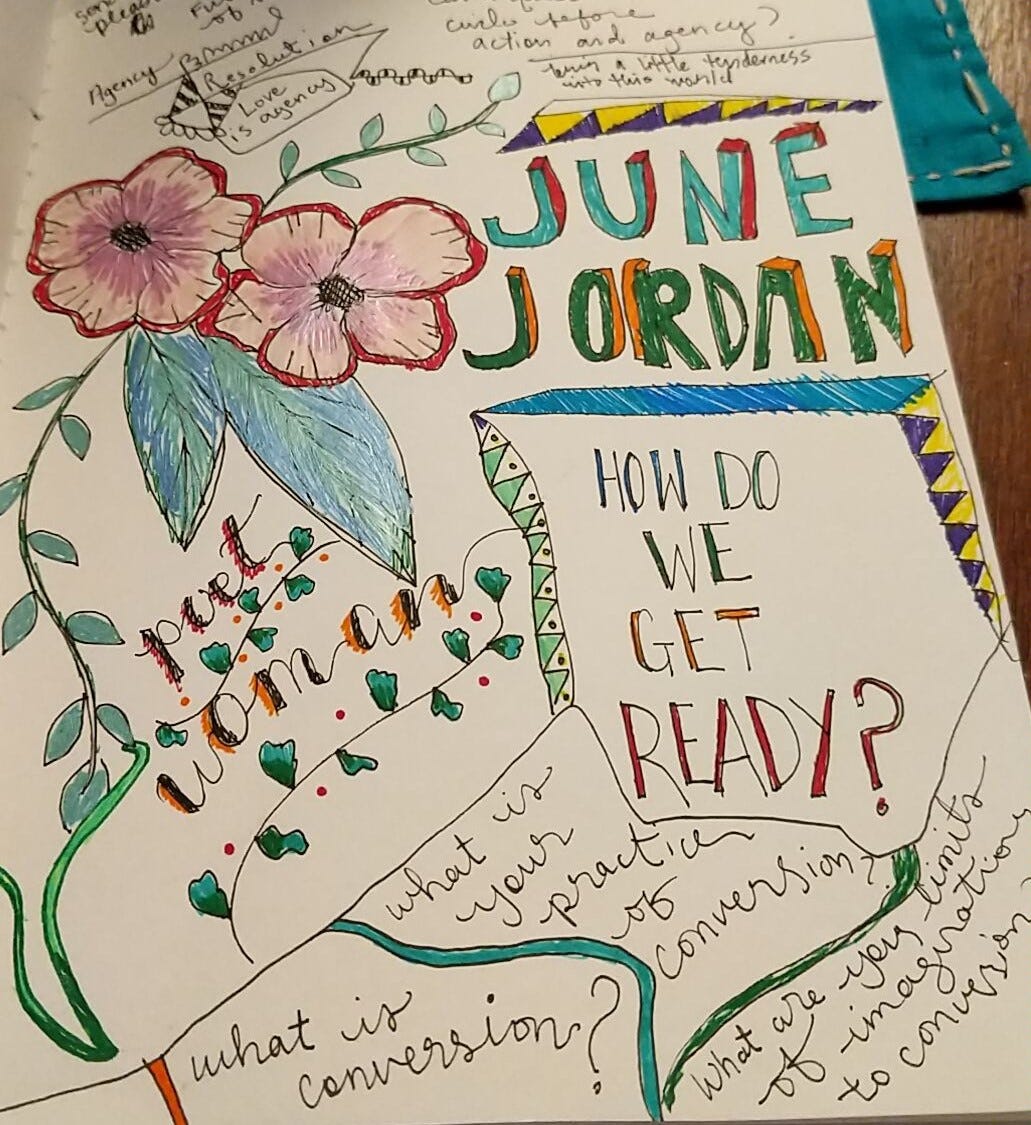 of
circles before
action and agency?
Agency
Resolution
Love
is agency
a little tenderness
into this world
JUNE
JORDAN
HOW DO
WE
GET
READY?
poet
woman
what is
your
practice
of
conversion?
what is
conversion?
What are your limits
of imagination
to conversion